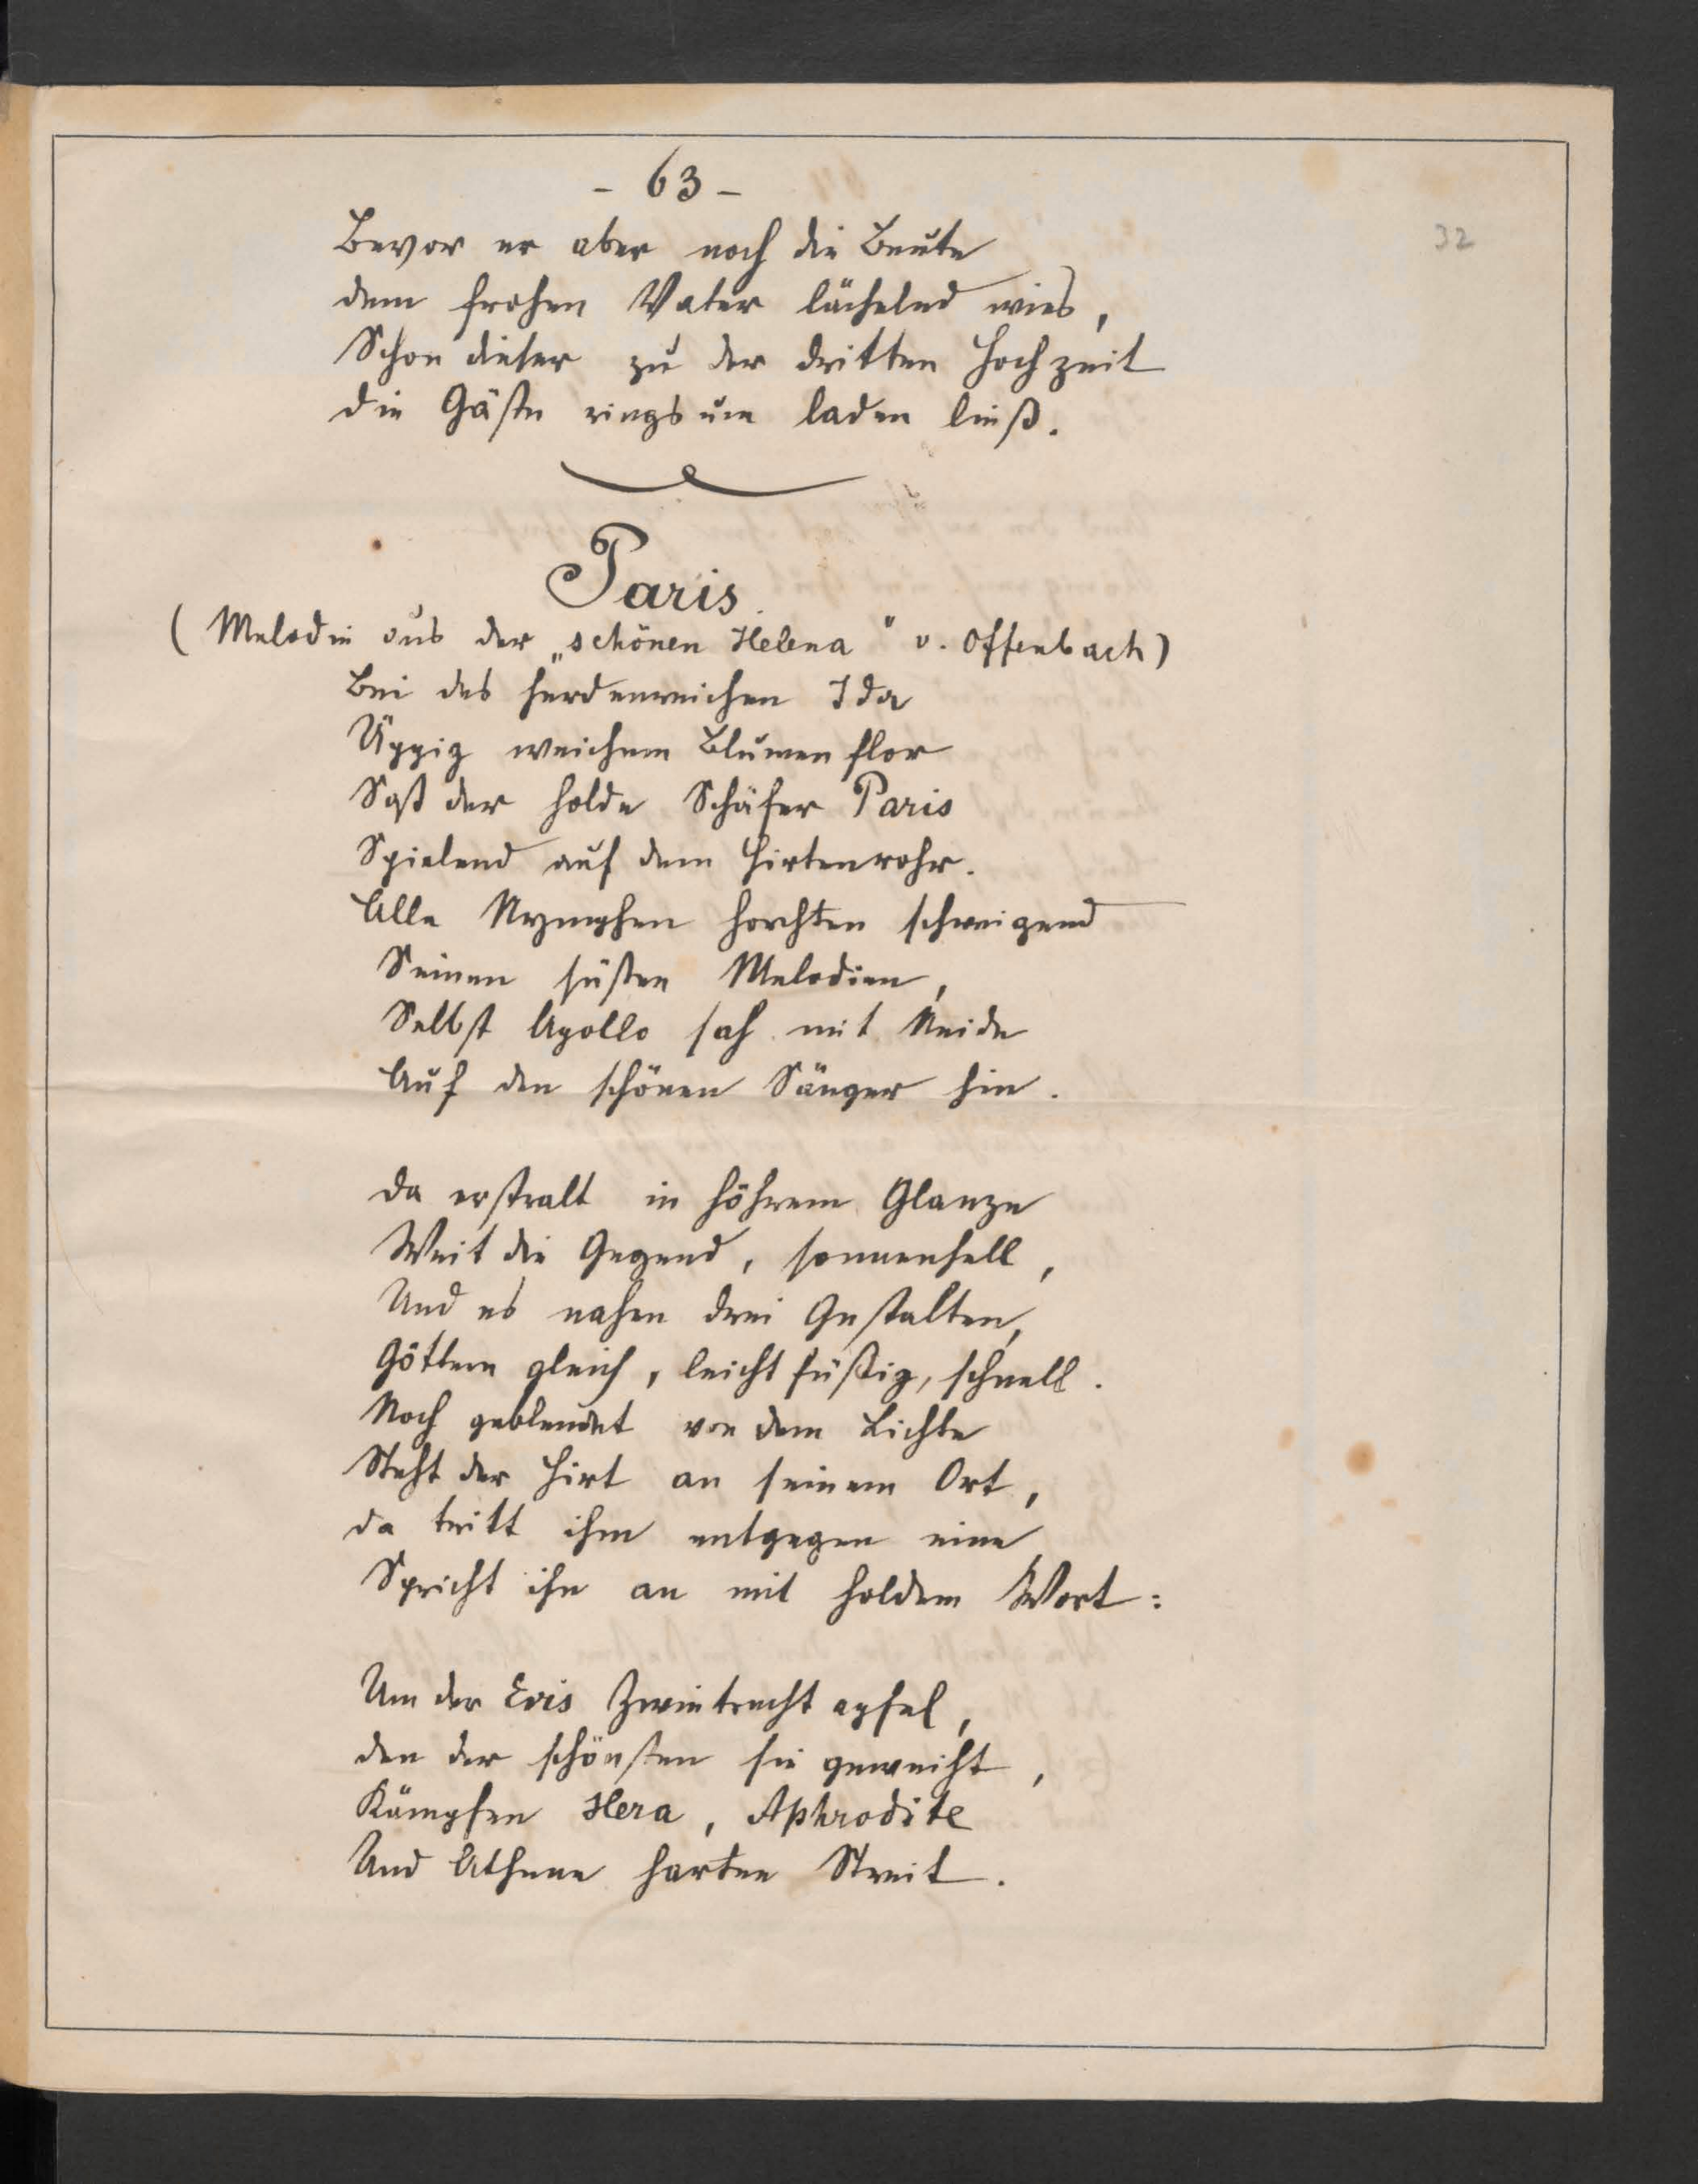 - 63 -
32
Bevor er aber noch die Beute
dem frohen Vater lächelnd wies,
Schon dieser zu der dritten Hochzeit
die Gäste ringsum laden ließ.
Paris.
(Melodie aus der „schönen Helena" v. Offenbach)
Bei des herdenreichen Ida
Üppig weichem Blumenflor
Saß der holde Schäfer Paris
Spielend auf dem Hirtenrohr.
Alle Nymphen horchten schweigend
Seinen süßen Melodien,
Selbst Apollo sah mit Neide
Auf den schönen Sänger hin.
Da erstralt in höhrem Glanze
Weit die Gegend, sonnenhell,
Und es nahen drei Gestalten,
Göttern gleich, leichtfüßig, schnell.
Noch geblendet von dem Lichte
Steht der Hirt an seinem Ort,
da tritt ihm entgegen eine
Spricht ihn an mit holdem Wort:
Um der Eris Zwietrachtapfel,
den der schönsten sie geweiht,
Kämpfen Hera, Aphrodite
Und Athene harten Streit.